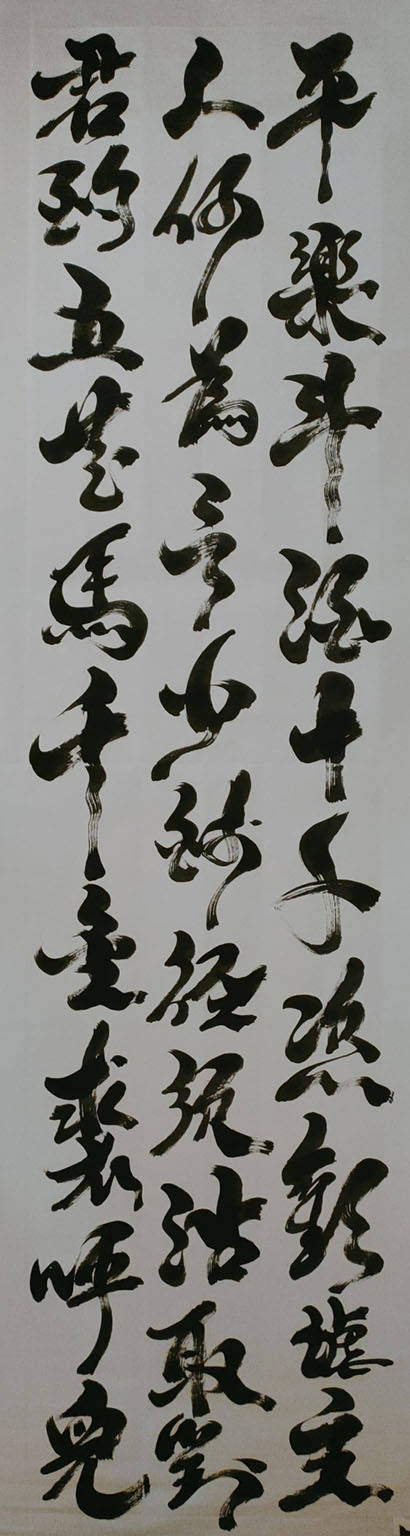 平樂斗酒十千恣歡謔主
人何為言少錢徑須沽取對
君酌五花馬千金裘呼兒